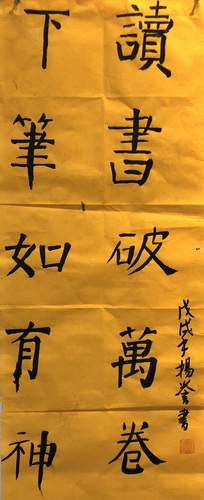 讀書破萬卷
下筆如有神
戊戌子楊誉書